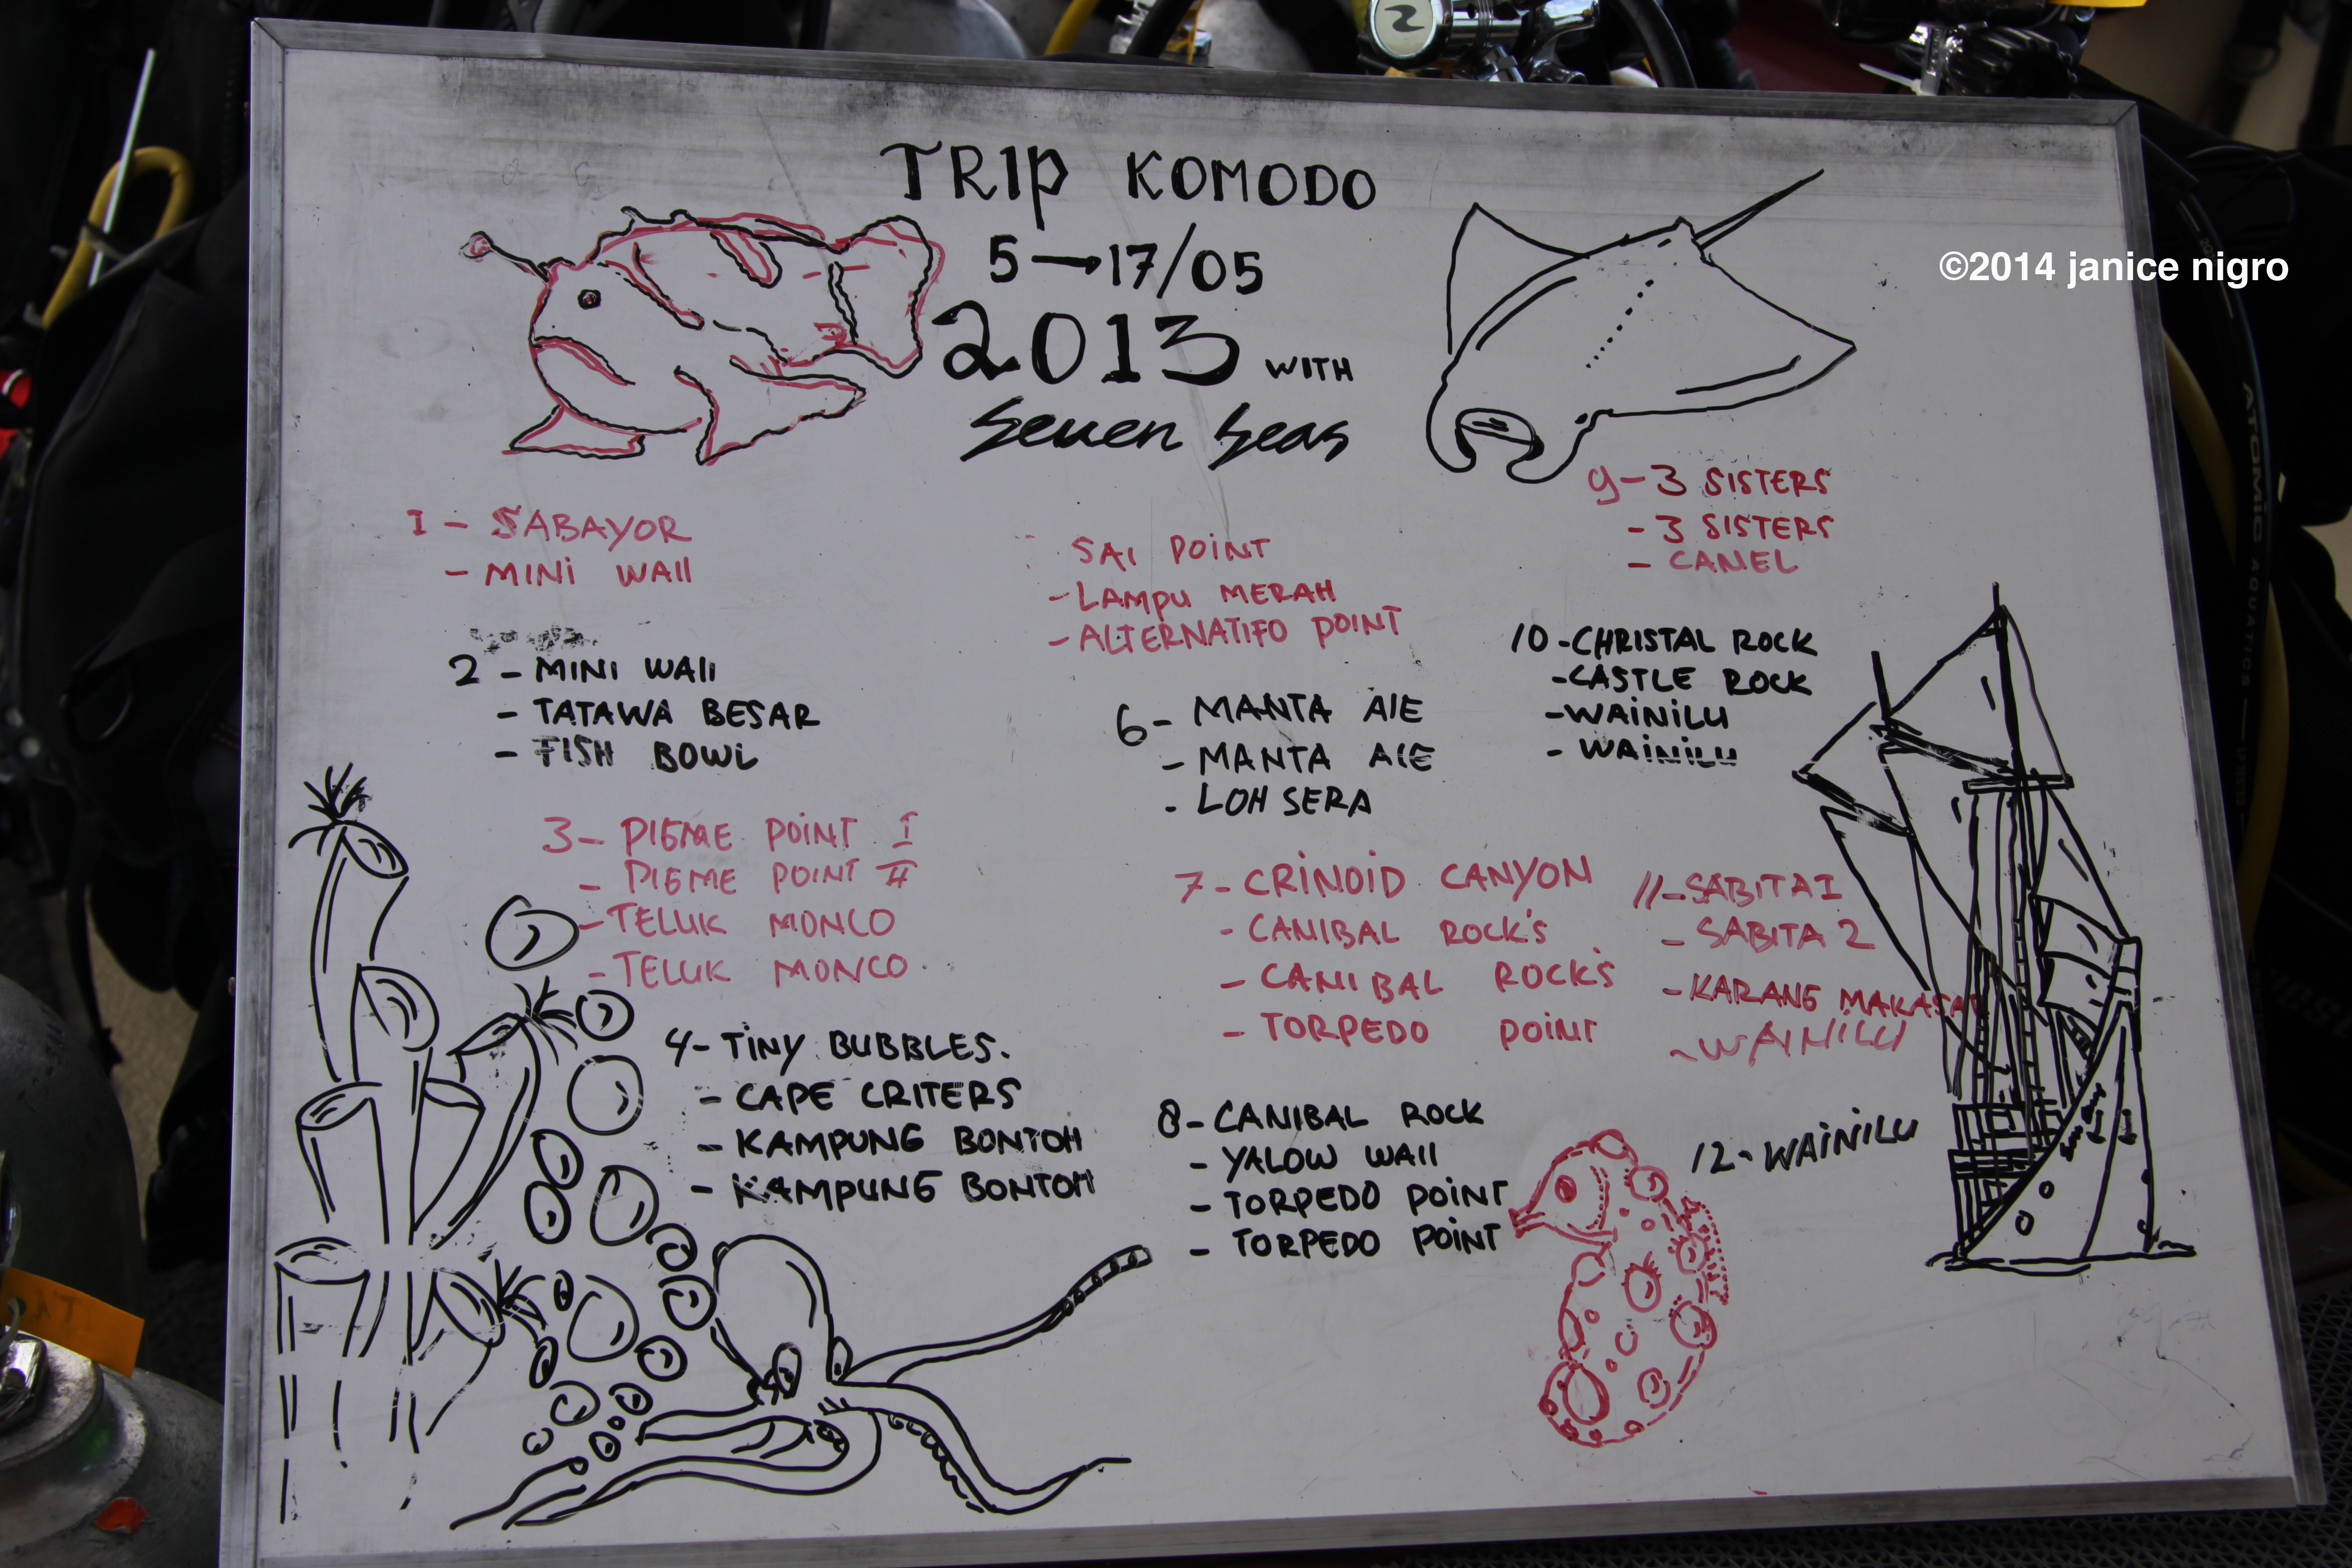 TRIP KOMODO
5→17/05
2013 WITH
Seven Seas
©2014 janice nigro
1 - SABAYOR
- MINI WAll
2 - MINI WAll
- TATAWA BESAR
- FISH BOWL
3 - PIGME POINT I
- PIGME POINT II
- TELUK MONCO
- TELUK MONCO
4 - TINY BUBBLES.
- CAPE CRITERS
- KAMPUNG BONTOH
- KAMPUNG BONTOH
SAI POINT
- LAMPU MERAH
- ALTERNATIFO POINT
6 - MANTA AlE
- MANTA AlE
- LOH SERA
7 - CRINOID CANYON
- CANIBAL ROCK'S
- CANIBAL ROCK'S
- TORPEDO POINT
8 - CANIBAL ROCK
- YALOW WAll
- TORPEDO POINT
- TORPEDO POINT
9 - 3 SISTERS
- 3 SISTERS
- CANEL
10 - CHRISTAL ROCK
- CASTLE ROCK
- WAINILU
- WAINILU
11 - SABITA 1
- SABITA 2
- KARANG MAKASAR
- WAINILU
12 - WAINILU
ATOMIC AQUATICS